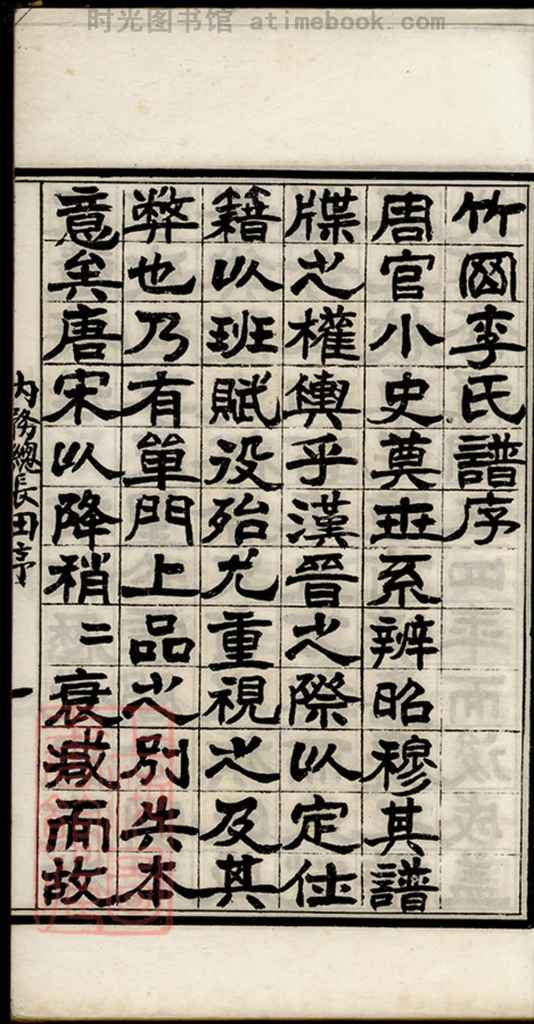 时光图书馆 atimebook.com
竹园李氏譜序
周官小史奠世系辨昭穆其譜
牒之權輿乎漢晉之際以定仕
籍以班賦役殆尤重視之及其
弊也乃有單門上品之别失本
意矣唐宋以降稍〻衰减而故
內務總長田序
一